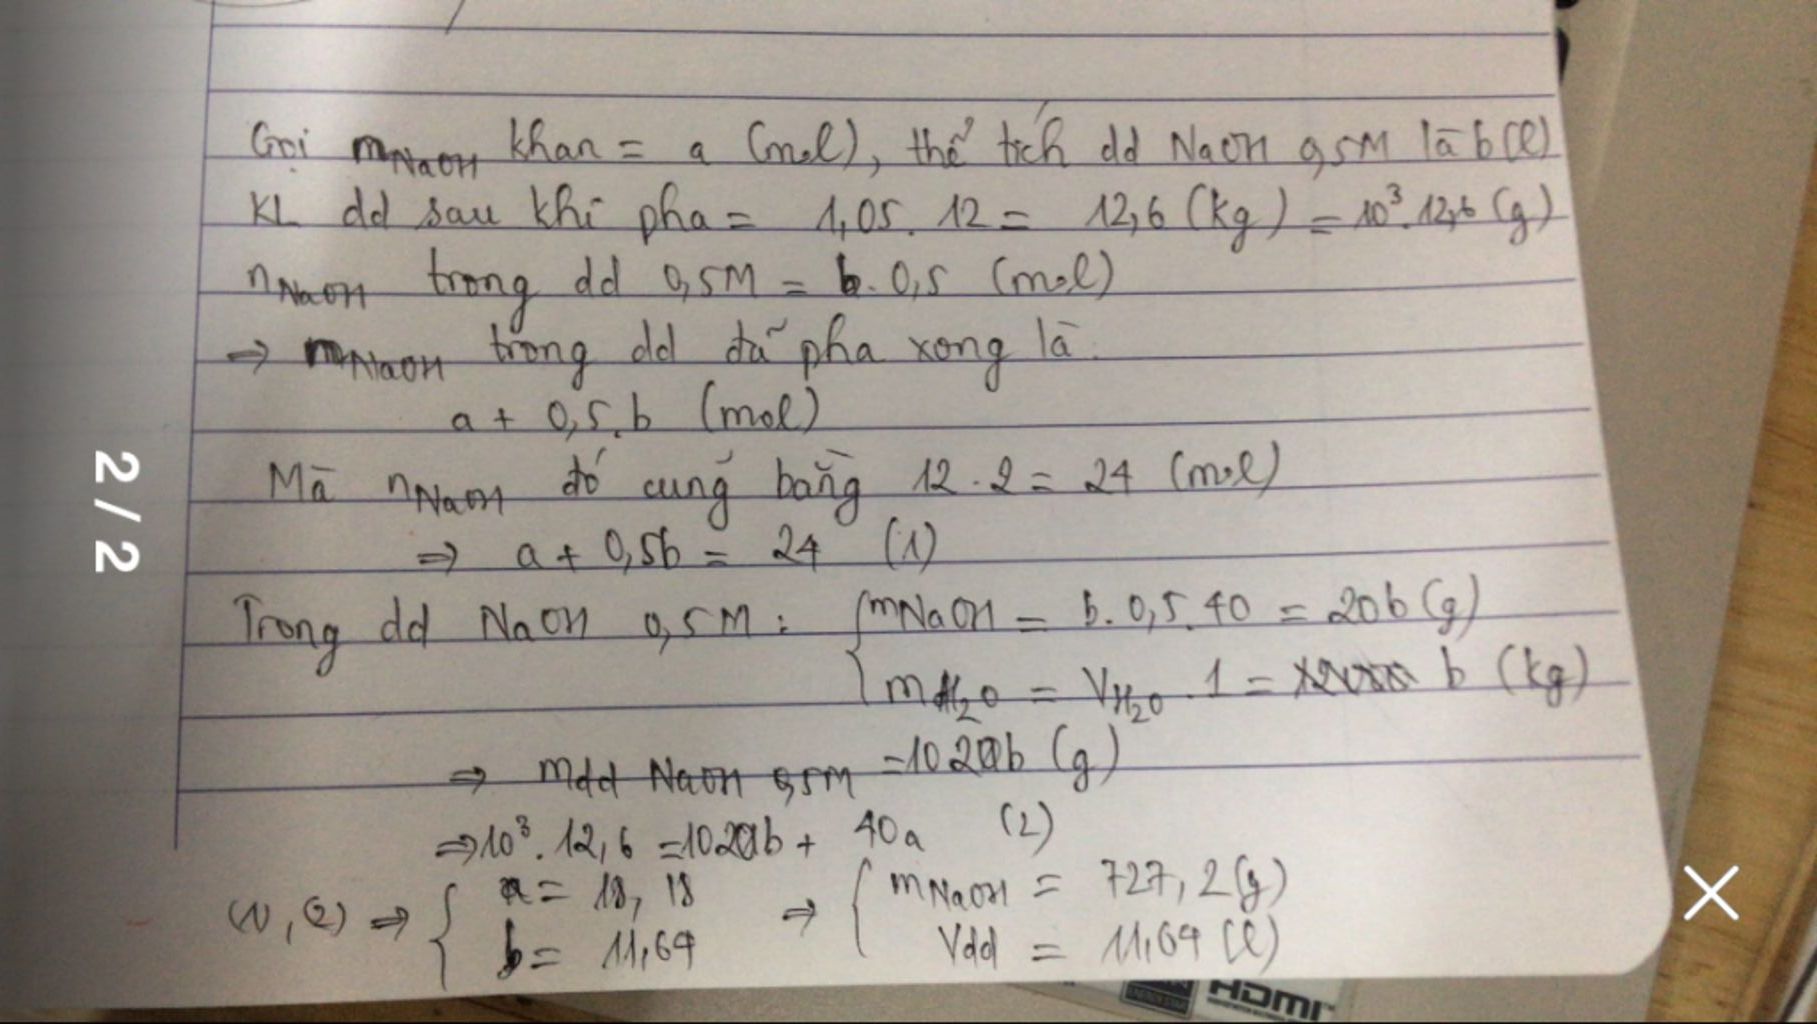 Gọi mNaOH khan = a (mol), thể tích dd NaOH 0,5M là b(l)
KL dd sau khi pha = 1,05. 12 = 12,6 (kg) = 10³. 12,6 (g)
nNaOH trong dd 0,5M = b. 0,5 (mol)
⇒ mNaOH trong dd đã pha xong là
a + 0,5.b (mol)
2/2
Mà nNaOH đó cũng bằng 12.2 = 24 (mol)
⇒ a + 0,5b = 24 (1)
Trong dd NaOH 0,5M: { mNaOH = b. 0,5. 40 = 20b (g)
mH₂O = VH₂O . 1 = b (kg)
⇒ mdd NaOH 0,5M = 1020b (g)
⇒ 10³. 12,6 = 1020b + 40a (2)
(1), (2) ⇒ { a = 18,18 ⇒ { mNaOH = 727,2 (g)
b = 11,64 Vdd = 11,64 (l)
HDMI